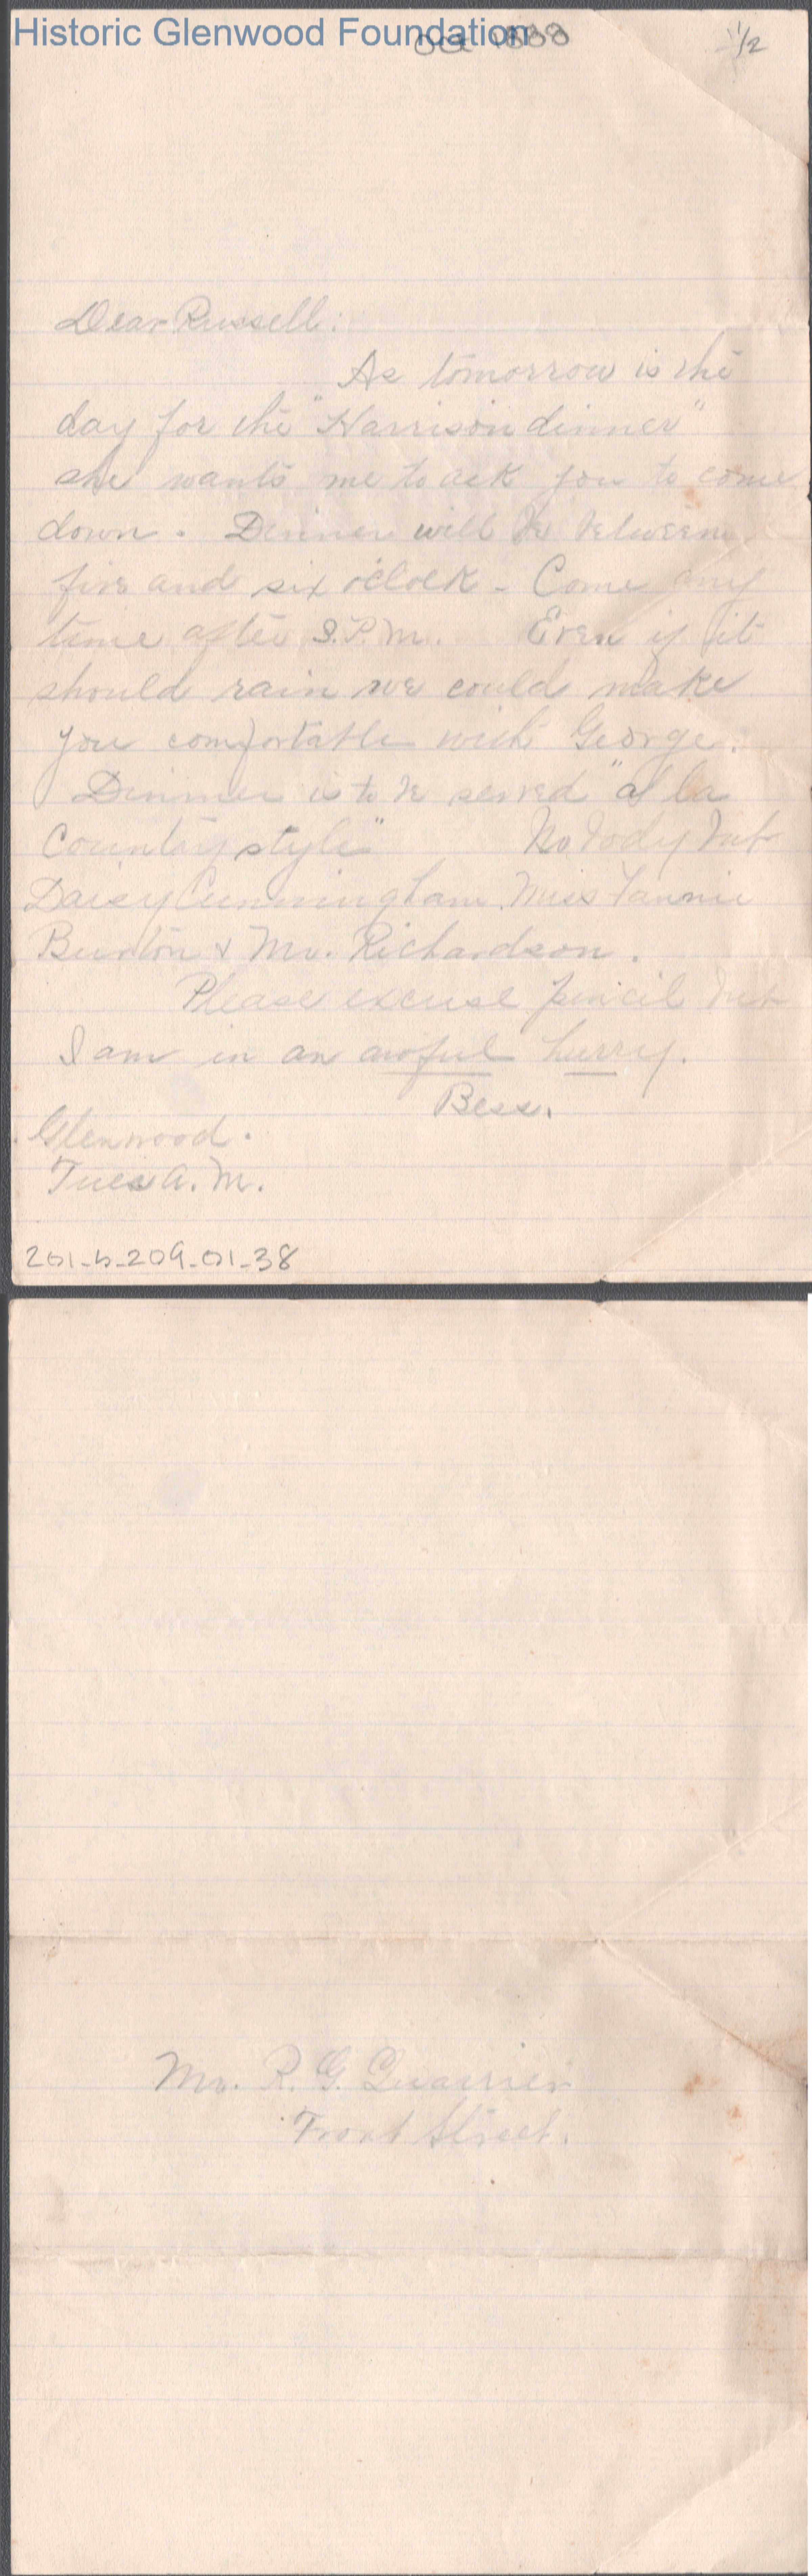 Historic Glenwood Foundation
Oct 1888
1/2
Dear Russell:
As tomorrow is the
day for the "Harrison dinner"
she wants me to ask you to come
down. Dinner will be between
five and six o'clock - Come any
time after 3.P.M. Even if it
should rain we could make
you comfortable with George.
Dinner is to be served "a la
Country style" Nobody but
Daisy Cunningham, Miss Fannie
Burton & Mr. Richardson.
Please excuse pencil but
I am in an awful hurry.
Bess.
Glenwood.
Tues A.M.
201-b-209-01-38
Mr. R. G. Quarrier
Front Street.